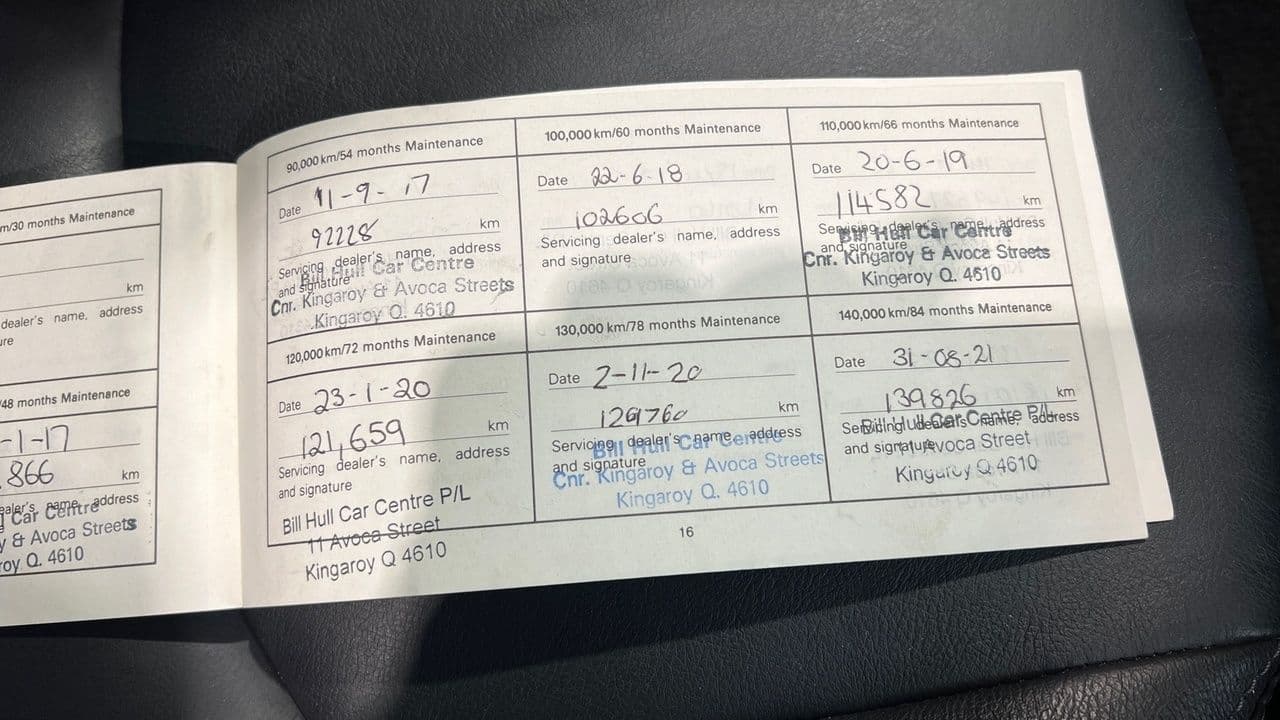 m/30 months Maintenance
km
dealer's name, address
ure
/48 months Maintenance
-1-17
866 km
ealer's name, address
l Car Centre
y & Avoca Streets
roy Q. 4610
90,000 km/54 months Maintenance
Date 11-9-17
92228 km
Servicing dealer's name, address
and signature
Bill Hull Car Centre
Cnr. Kingaroy & Avoca Streets
Kingaroy Q. 4610
100,000 km/60 months Maintenance
Date 22-6-18
102606 km
Servicing dealer's name, address
and signature
110,000 km/66 months Maintenance
Date 20-6-19
114582 km
Servicing dealer's name, address
and signature
Bill Hull Car Centre
Cnr. Kingaroy & Avoca Streets
Kingaroy Q. 4610
120,000 km/72 months Maintenance
Date 23-1-20
121,659 km
Servicing dealer's name, address
and signature
Bill Hull Car Centre P/L
11 Avoca Street
Kingaroy Q 4610
130,000 km/78 months Maintenance
Date 2-11-20
129760 km
Servicing dealer's name, address
and signature
Bill Hull Car Centre
Cnr. Kingaroy & Avoca Streets
Kingaroy Q. 4610
140,000 km/84 months Maintenance
Date 31-08-21
139826 km
Servicing dealer's name, address
and signature
Bill Hull Car Centre P/L
Avoca Street
Kingaroy Q 4610
16